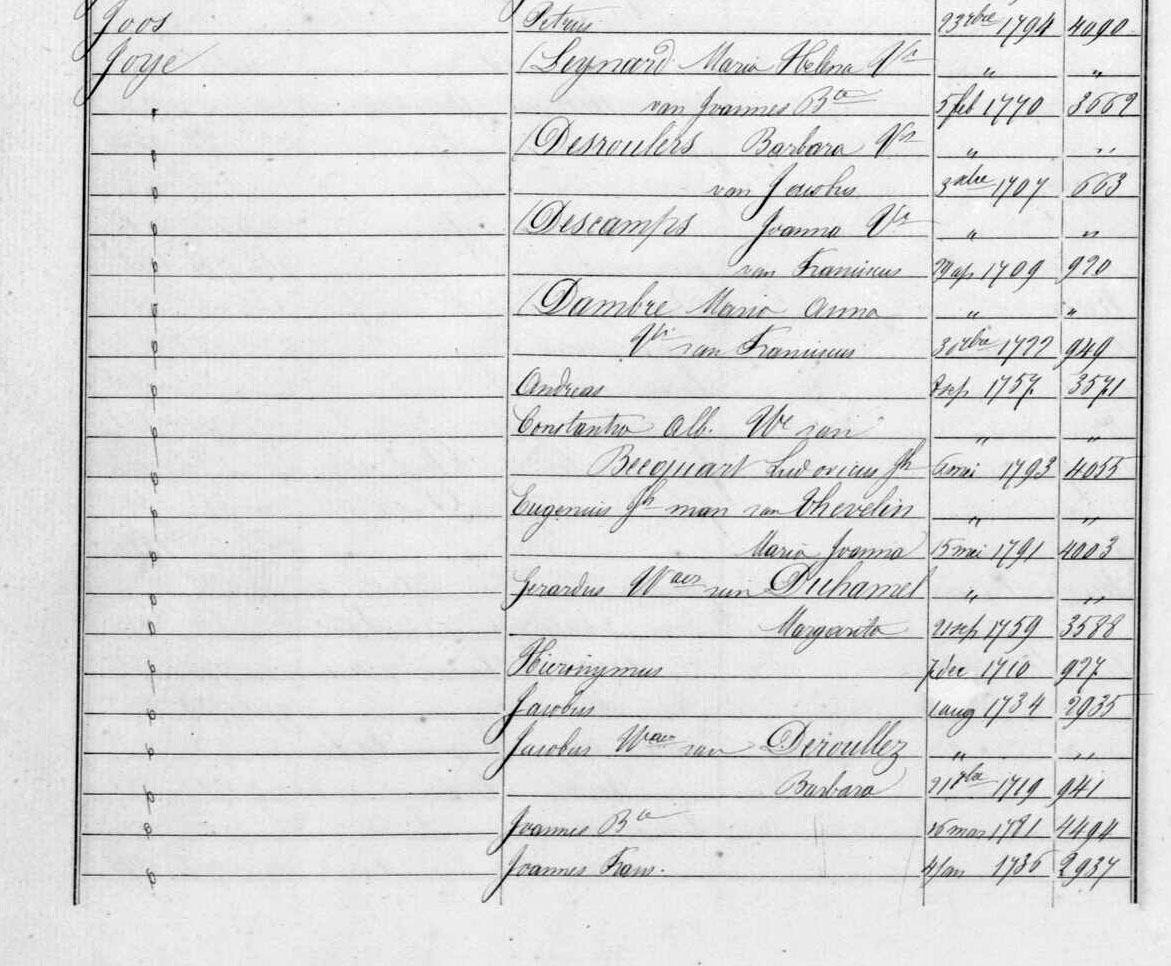 Joos Petrus 23 9bre 1794 4090
Joye (Leynard Maria Helena Ve " "
" van Joannes Bta 5 feb 1770 3662
" (Desroulers Barbara Ve " "
" van Jacobus 3 xbre 1707 663
" (Descamps Joanna Ve " "
" van Franciscus 29 ap 1709 920
" (Dambre Maria Anna " "
" Ve van Franciscus 1722 949
" Andreas sep 1757 3571
" Constantia Alb. We van " "
" Becquart Ludovicus Jh 6 mai 1793 4055
" Eugenius Jh man van Thevelin " "
" Maria Joanna 15 mei 1791 4003
" Gerardus Waer van Duhamel " "
" Margarita 21 sep 1759 3588
" Hieronymus 7 dec 1710 927
" Jacobus 1 aug 1734 2935
" Jacobus Waer van Deroullez " "
" Barbara 21 1719 941
" Joannes Bta 26 mar 1781 4494
" Joannes Frans. 4 jan 1736 2937